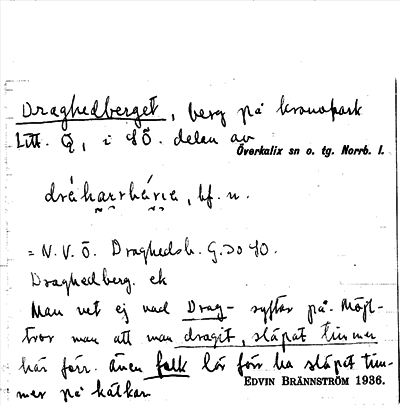 Draghedberget, berg på kronopark
Litt. Q, i SÖ. delen av
Överkalix sn o. tg. Norrb. l.
bf. n.
= N. V. Ö. Draghedsh. G. 30 SO.
Draghedberg. ek
Man vet ej vad Drag- syftar på. Möjl-
tror man att man dragit, släpat timmer
här förr. Även folk lär förr ha släpat tim-
mer på kälkar
EDVIN BRÄNNSTRÖM 1936.